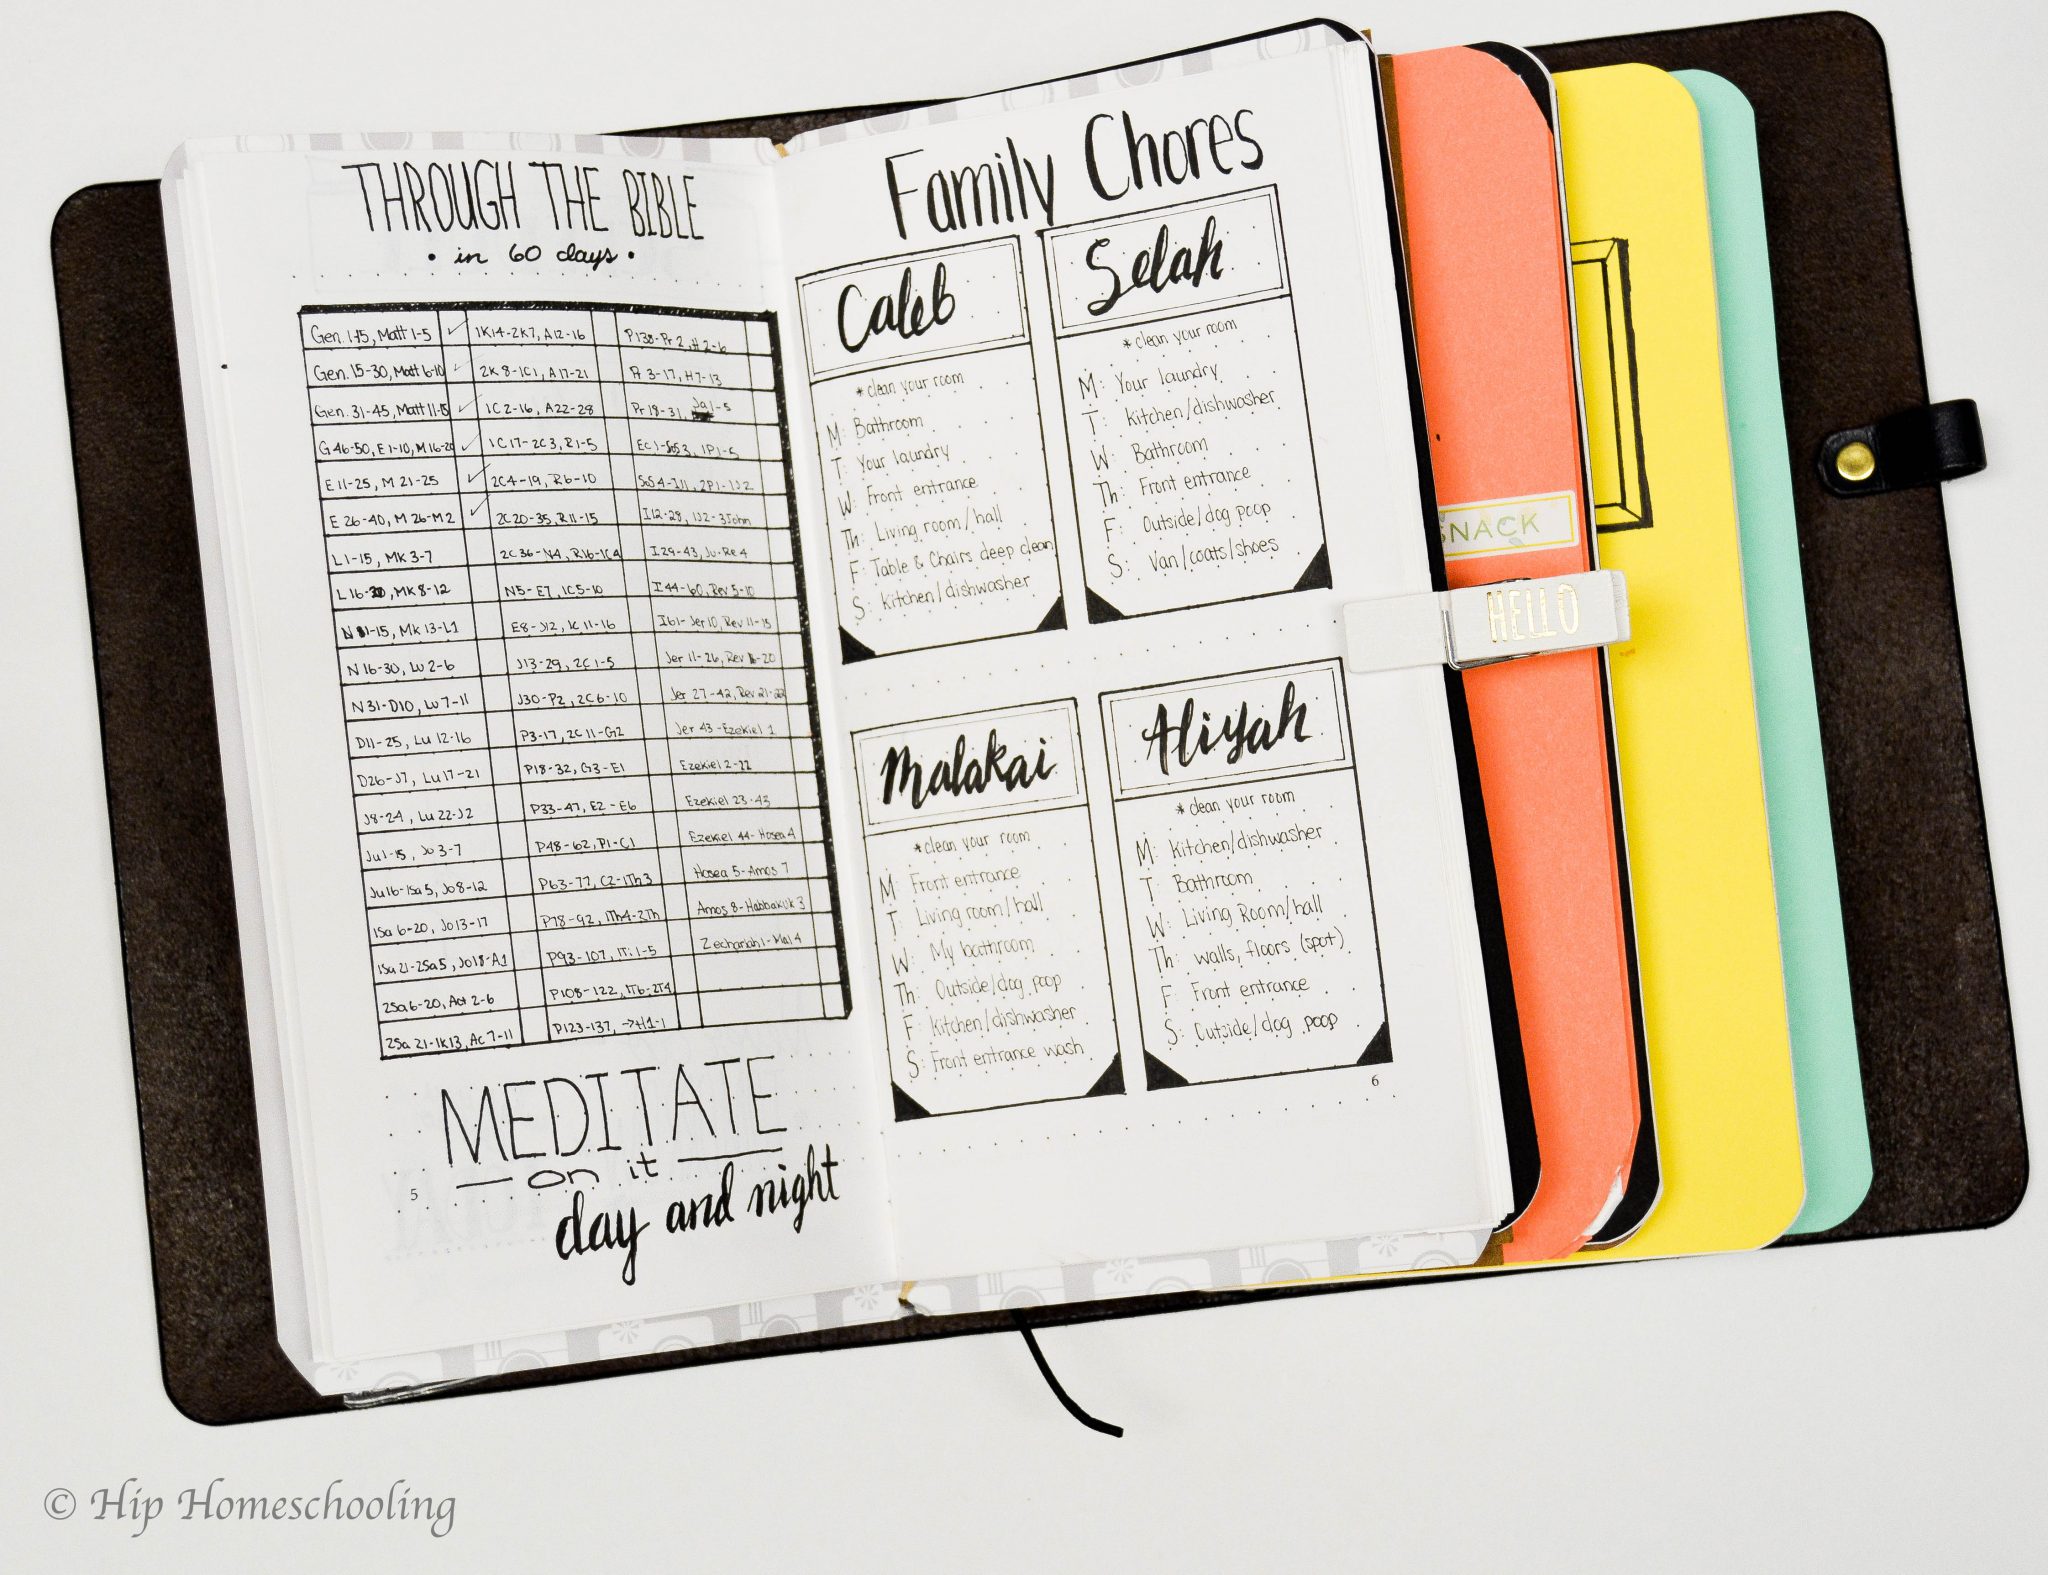 THROUGH THE BIBLE
• in 60 days •
Gen. 1-15, Matt 1-5 ✓ 1K14-2K7, A12-16 P138-Pr 2, H 2-6
Gen. 15-30, Matt 6-10 ✓ 2K 8-1C1, A17-21 Pr 3-17, H7-13
Gen. 31-45, Matt 11-15 ✓ 1C 2-16, A22-28 Pr 18-31, Ja 1-5
G 46-50, E 1-10, M 16-20 ✓ 1C17-2C3, R1-5 Ec 1-SoS 3, 1P1-5
E 11-25, M 21-25 ✓ 2C4-19, R6-10 SoS 4-I11, 2P1-1J2
E 26-40, M 26-M2 ✓ 2C20-35, R11-15 I12-28, 1J2-3John
L 1-15, Mk 3-7 2C36-N4, R16-1C4 I29-43, Ju-Re 4
L 16-, Mk 8-12 N5-E7, 1C5-10 I 44-60, Rev 5-10
N 1-15, Mk 13-L1 E8-J12, 1C 11-16 I61-Jer 10, Rev 11-15
N 16-30, Lu 2-6 J13-29, 2C 1-5 Jer 11-26, Rev 16-20
N 31-D10, Lu 7-11 J30-P2, 2C 6-10 Jer 27-42, Rev 21-22
D11-25, Lu 12-16 P3-17, 2C 11-G2 Jer 43-Ezekiel 1
D26-J7, Lu 17-21 P18-32, G3-E1 Ezekiel 2-22
J8-24, Lu 22-J2 P33-47, E2-E6 Ezekiel 23-43
Ju 1-15, Jo 3-7 P48-62, P1-C1 Ezekiel 44-Hosea 4
Ju 16-1Sa 5, Jo 8-12 P63-77, C2-1Th3 Hosea 5-Amos 7
1Sa 6-20, Jo 13-17 P78-92, 1Th4-2Th Amos 8-Habbakuk 3
1Sa 21-2Sa 5, Jo18-A1 P93-107, 1Ti 1-5 Zechariah 1-Mal 4
2Sa 6-20, Act 2-6 P108-122, 1T6-2T4
2Sa 21-1K13, Ac 7-11 P123-137, →H1-1
MEDITATE
on it
day and night
5
Family Chores
Caleb
*clean your room
M: Bathroom
T: Your laundry
W: Front entrance
Th: Living room/hall
F: Table & Chairs deep clean
S: Kitchen/dishwasher
Selah
*clean your room
M: Your laundry
T: Kitchen/dishwasher
W: Bathroom
Th: Front entrance
F: Outside/dog poop
S: Van/coats/shoes
Malakai
*clean your room
M: Front entrance
T: Living room/hall
W: My bathroom
Th: Outside/dog poop
F: Kitchen/dishwasher
S: Front entrance wash
Aliyah
*clean your room
M: Kitchen/dishwasher
T: Bathroom
W: Living Room/hall
Th: walls, floors (spot)
F: Front entrance
S: Outside/dog poop
6
SNACK
HELLO
© Hip Homeschooling